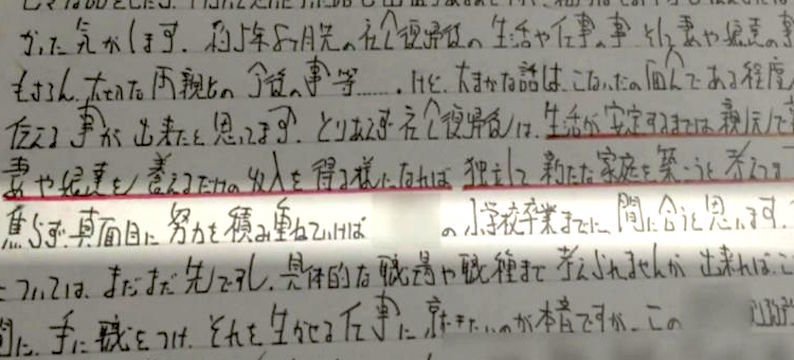 かった気がします。約5年8ヶ月先の社会復帰後の生活や仕事の事、そして妻や娘達の事
もちろん、大切な両親との今後の事等……。けど、大まかな話は、こないだの面会である程度
伝える事が出来たと思ってます。とりあえず社会復帰後は、生活が安定するまでは親元で
妻や娘達を養えるだけの収入を得る様になれば、独立して新たな家庭を築こうと考えてます
焦らず、真面目に努力を積み重ねていけば の小学校卒業までに間に合うと思います。
ついては、まだまだ先ですし、具体的な職場や職種まで考えられませんが、出来ればこ
間に、手に職をつけ、それを生かせる仕事に就きたいのが本音ですが、この